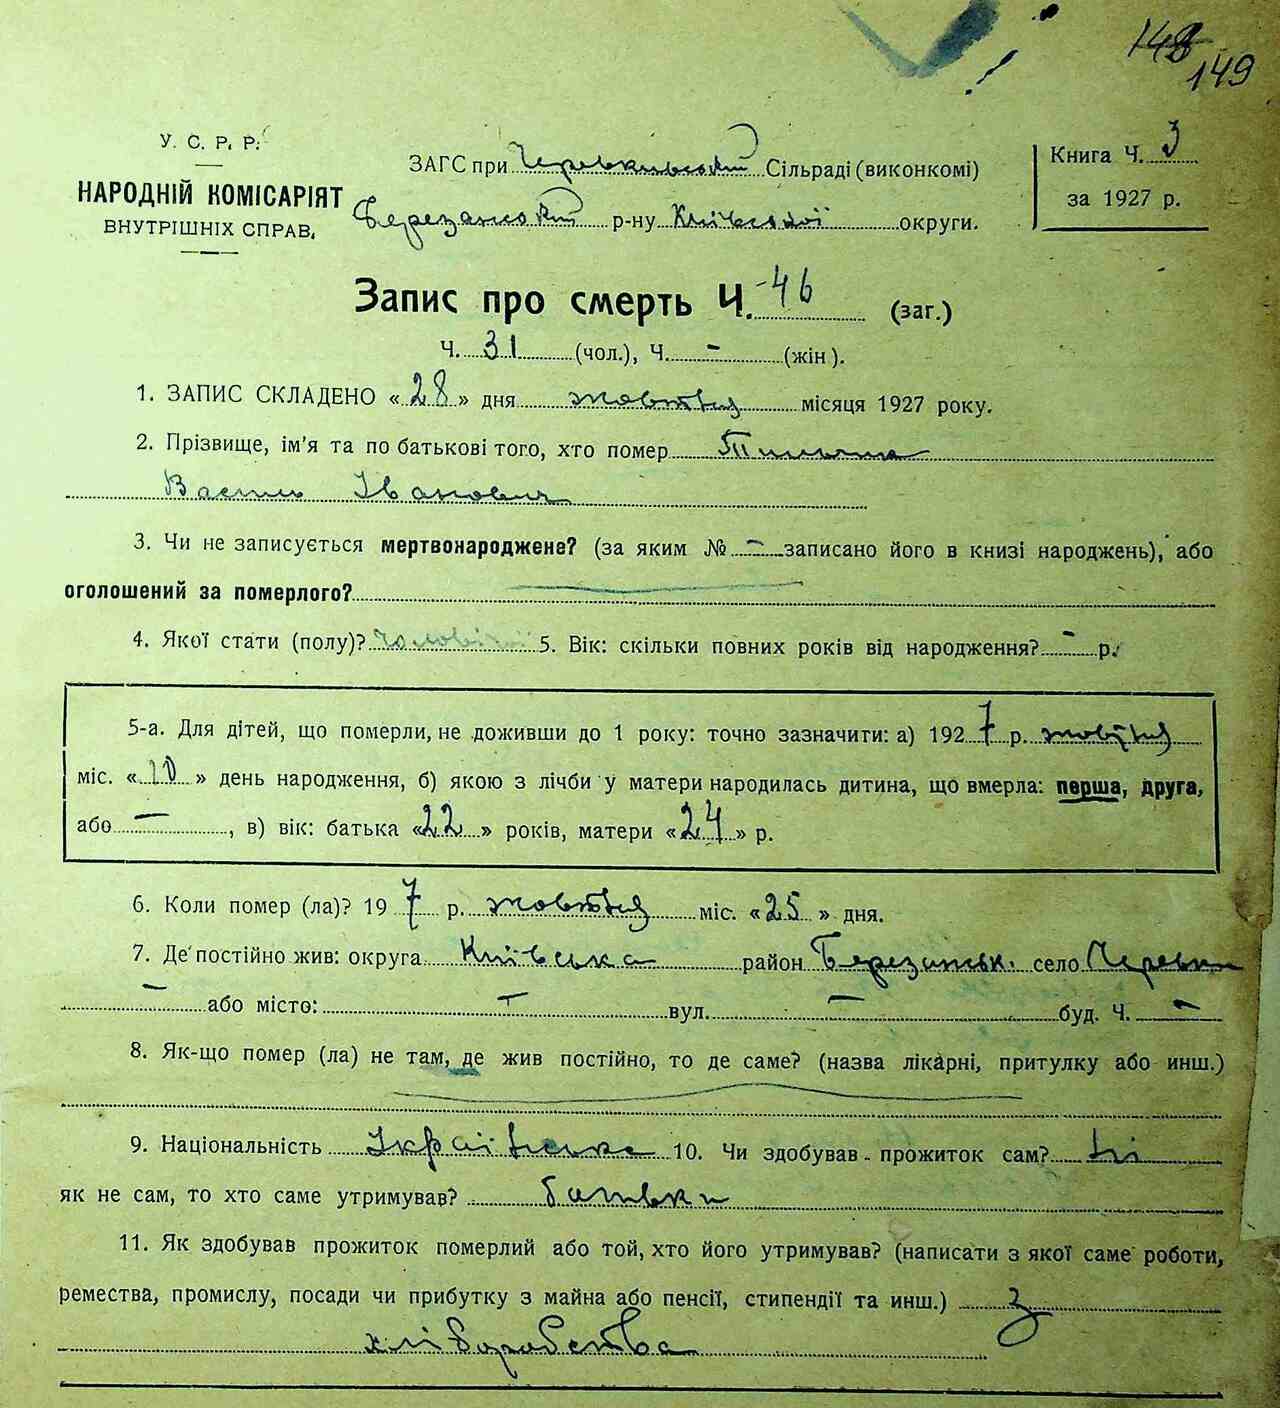 148
149
У. С. Р. Р.
НАРОДНІЙ КОМІСАРІЯТ
ВНУТРІШНІХ СПРАВ,
ЗАГС при Черевківській Сільраді (виконкомі)
Березанськ р-ну Київської округи.
Книга Ч. 3
за 1927 р.
Запис про смерть Ч. 46 (заг.)
Ч. 31 (чол.), Ч. - (жін).
1. ЗАПИС СКЛАДЕНО « 28 » дня жовтня місяця 1927 року.
2. Прізвище, ім'я та по батькові того, хто помер
Василь Іванович
3. Чи не записується мертвонароджене? (за яким № - записано його в книзі народжень), або
оголошений за померлого?
4. Якої стати (полу)? чоловічої 5. Вік: скільки повних років від народження? - р.
5-а. Для дітей, що померли, не доживши до 1 року: точно зазначити: а) 1927 р. жовтня
міс. « 10 » день народження, б) якою з лічби у матери народилась дитина, що вмерла: перша, друга,
або —, в) вік: батька « 22 » років, матери « 24 » р.
6. Коли помер (ла)? 19 7 р. жовтня міс. « 25 » дня.
7. Де постійно жив: округа Київська район Березанськ. село Черевки
— або місто: — вул. — буд. Ч. -
8. Як-що помер (ла) не там, де жив постійно, то де саме? (назва лікарні, притулку або инш.)
9. Національність Українська 10. Чи здобував прожиток сам? Ні
як не сам, то хто саме утримував? батьки
11. Як здобував прожиток померлий або той, хто його утримував? (написати з якої саме роботи,
ремества, промислу, посади чи прибутку з майна або пенсії, стипендії та инш.) з
хліборобства